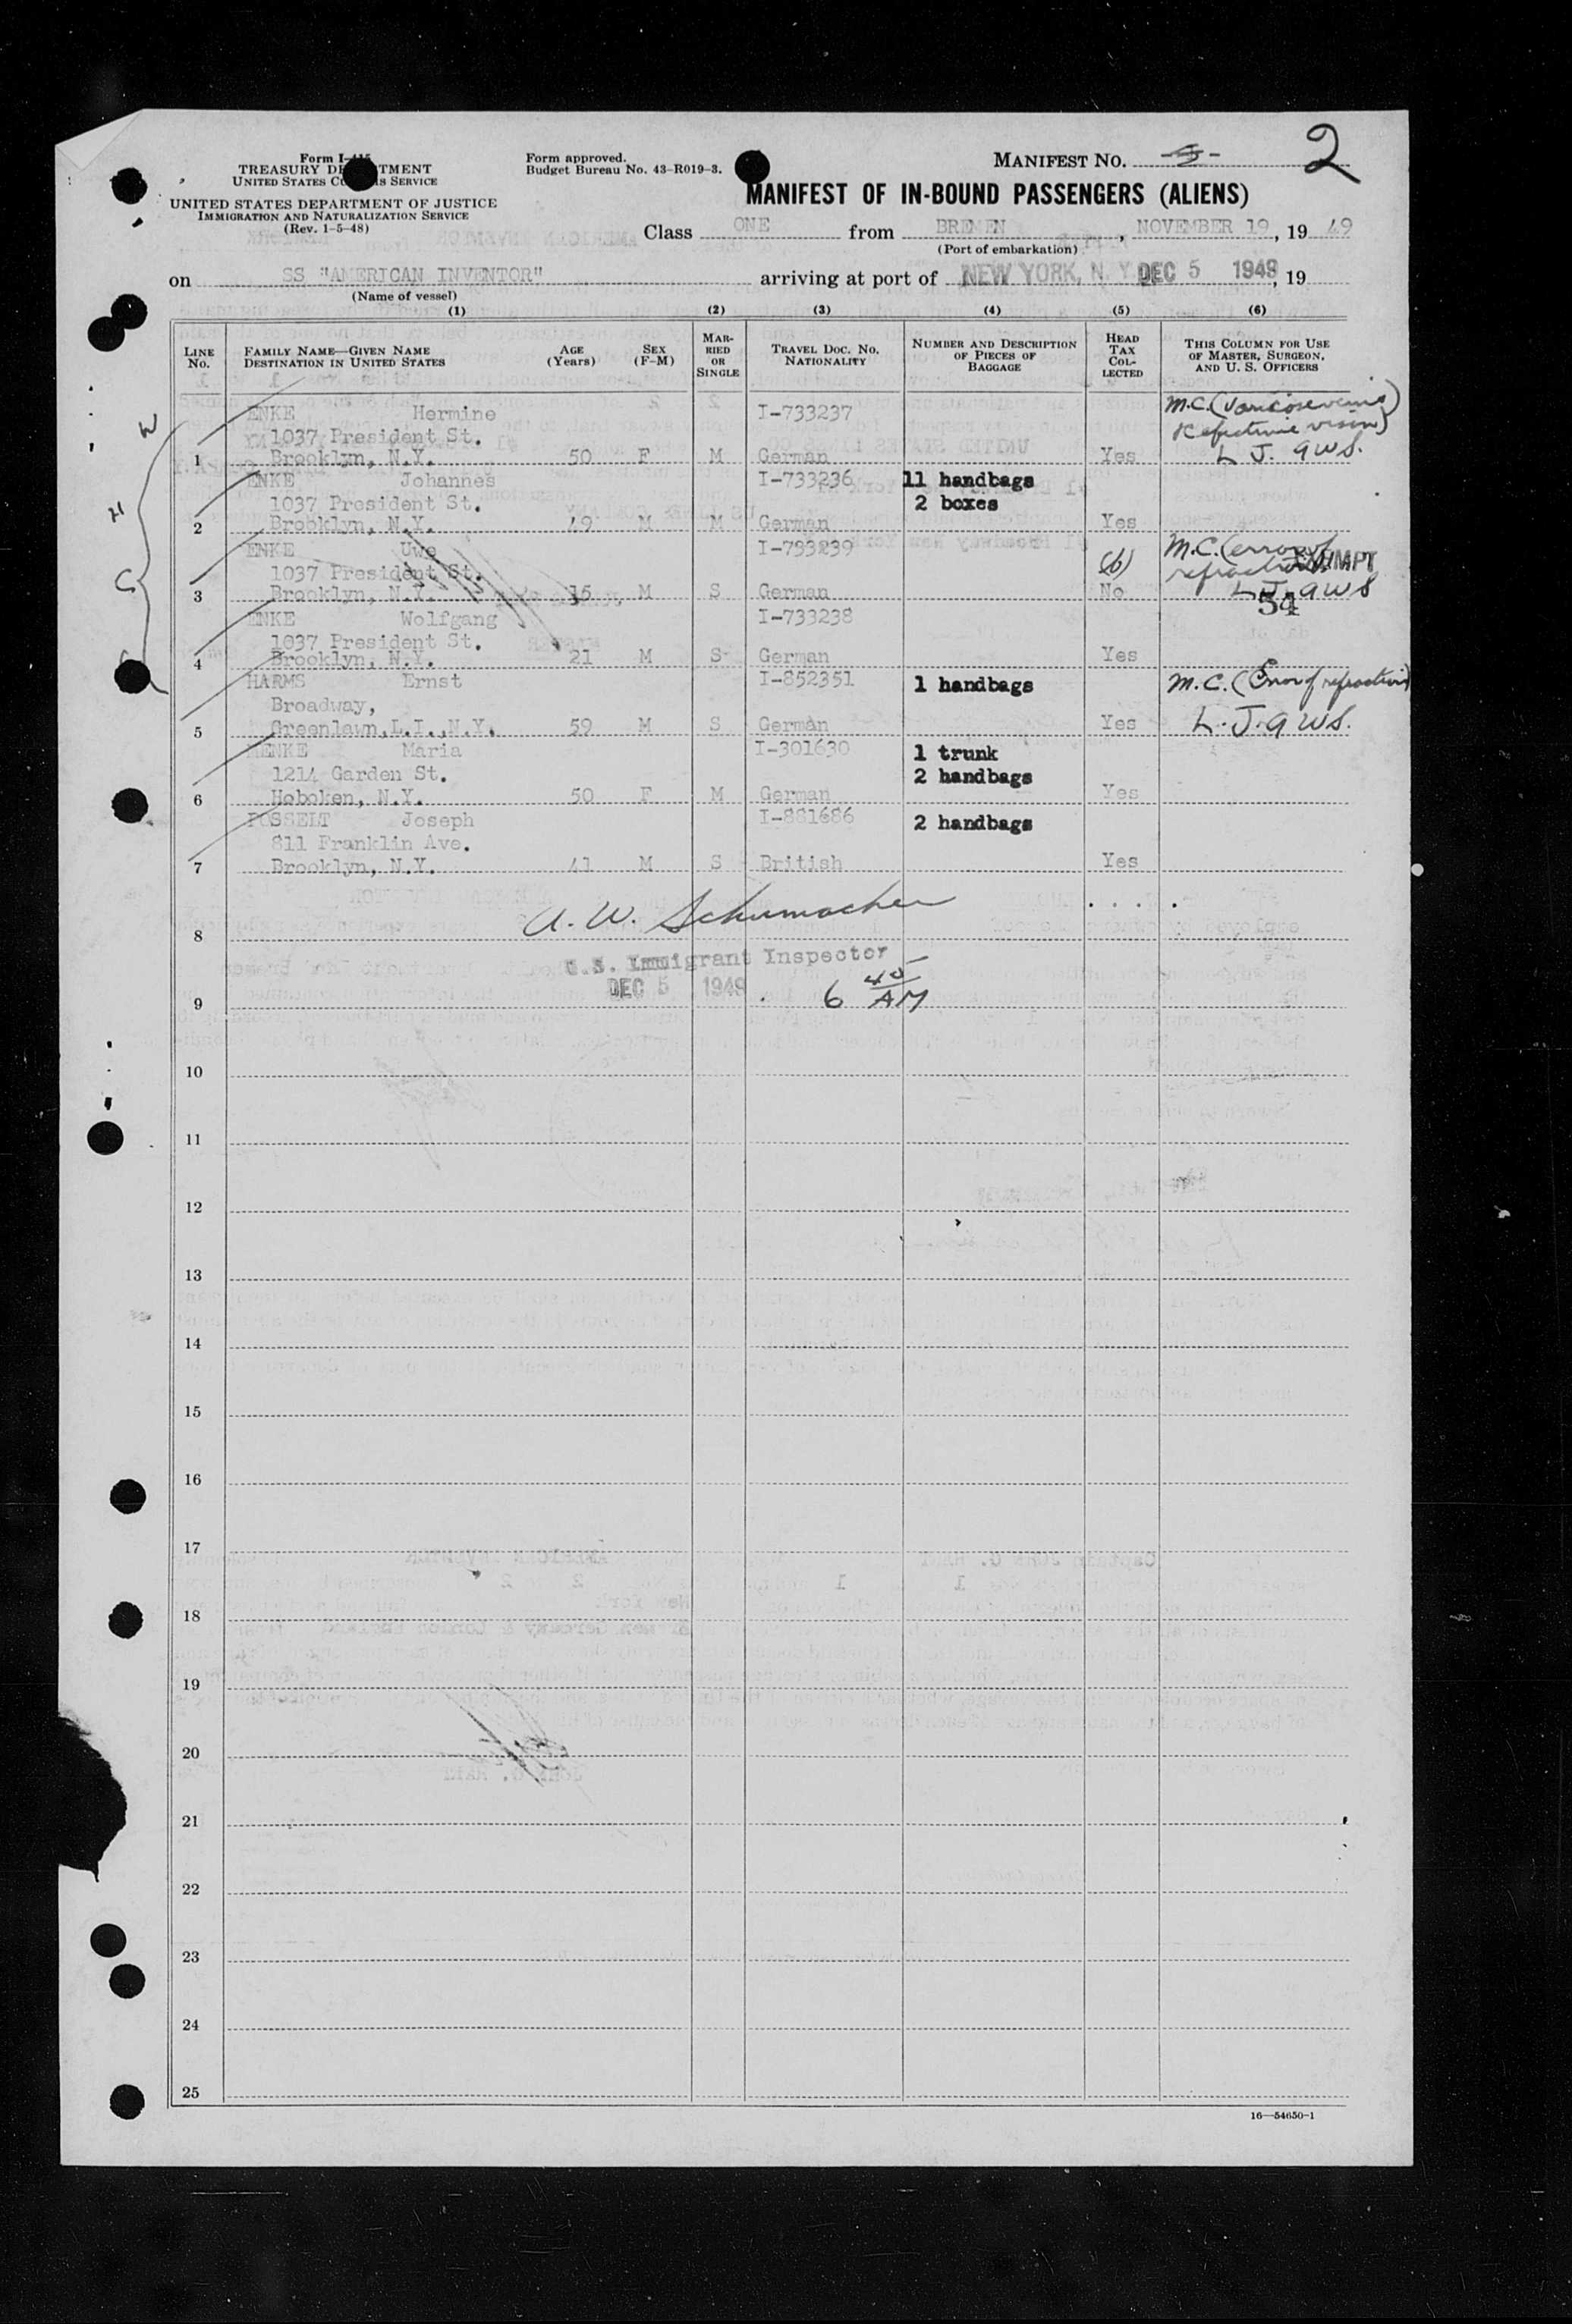 Form I-415
TREASURY DEPARTMENT
UNITED STATES CUSTOMS SERVICE
UNITED STATES DEPARTMENT OF JUSTICE
IMMIGRATION AND NATURALIZATION SERVICE
(Rev. 1-5-48)
Form approved.
Budget Bureau No. 43-R019-3.
MANIFEST NO. 2
MANIFEST OF IN-BOUND PASSENGERS (ALIENS)
Class ONE from BREMEN, NOVEMBER 19, 19 49
(Port of embarkation)
on SS "AMERICAN INVENTOR" arriving at port of NEW YORK, N.Y. DEC 5 1949, 19
(Name of vessel)
(1) (2) (3) (4) (5) (6)
LINE NO. FAMILY NAME—GIVEN NAME DESTINATION IN UNITED STATES AGE (Years) SEX (F-M) MARRIED OR SINGLE TRAVEL DOC. NO. NATIONALITY NUMBER AND DESCRIPTION OF PIECES OF BAGGAGE HEAD TAX COLLECTED THIS COLUMN FOR USE OF MASTER, SURGEON, AND U. S. OFFICERS
W
ENKE Hermine I-733237 M.C. (Varicose veins)
1037 President St. Refective vision)
1 Brooklyn, N.Y. 50 F M German Yes L. J. GWS.
ENKE Johannes I-733236 11 handbags
H
1037 President St. 2 boxes
2 Brooklyn, N.Y. 49 M M German Yes
ENKE Uwe I-733239 M.C. (error of
C
1037 President St. (6) refraction) EXEMPT
3 Brooklyn, N.Y. 16 M S German No L. J. GWS
54
ENKE Wolfgang I-733238
1037 President St.
4 Brooklyn, N.Y. 21 M S German Yes
HARMS Ernst I-852351 1 handbags M.C. (Error of refraction)
Broadway,
5 Greenlawn,L.I.,N.Y. 59 M S German Yes L. J. GWS.
MENKE Maria I-301630 1 trunk
1214 Garden St. 2 handbags
6 Hoboken, N.Y. 50 F M German Yes
POSSELT Joseph I-881686 2 handbags
811 Franklin Ave.
7 Brooklyn, N.Y. 41 M S British Yes
A. W. Schumacher
8
U.S. Immigrant Inspector
DEC 5 1949 6 40 AM
9
10
11
12
13
14
15
16
17
18
19
20
21
22
23
24
25
16—54650-1